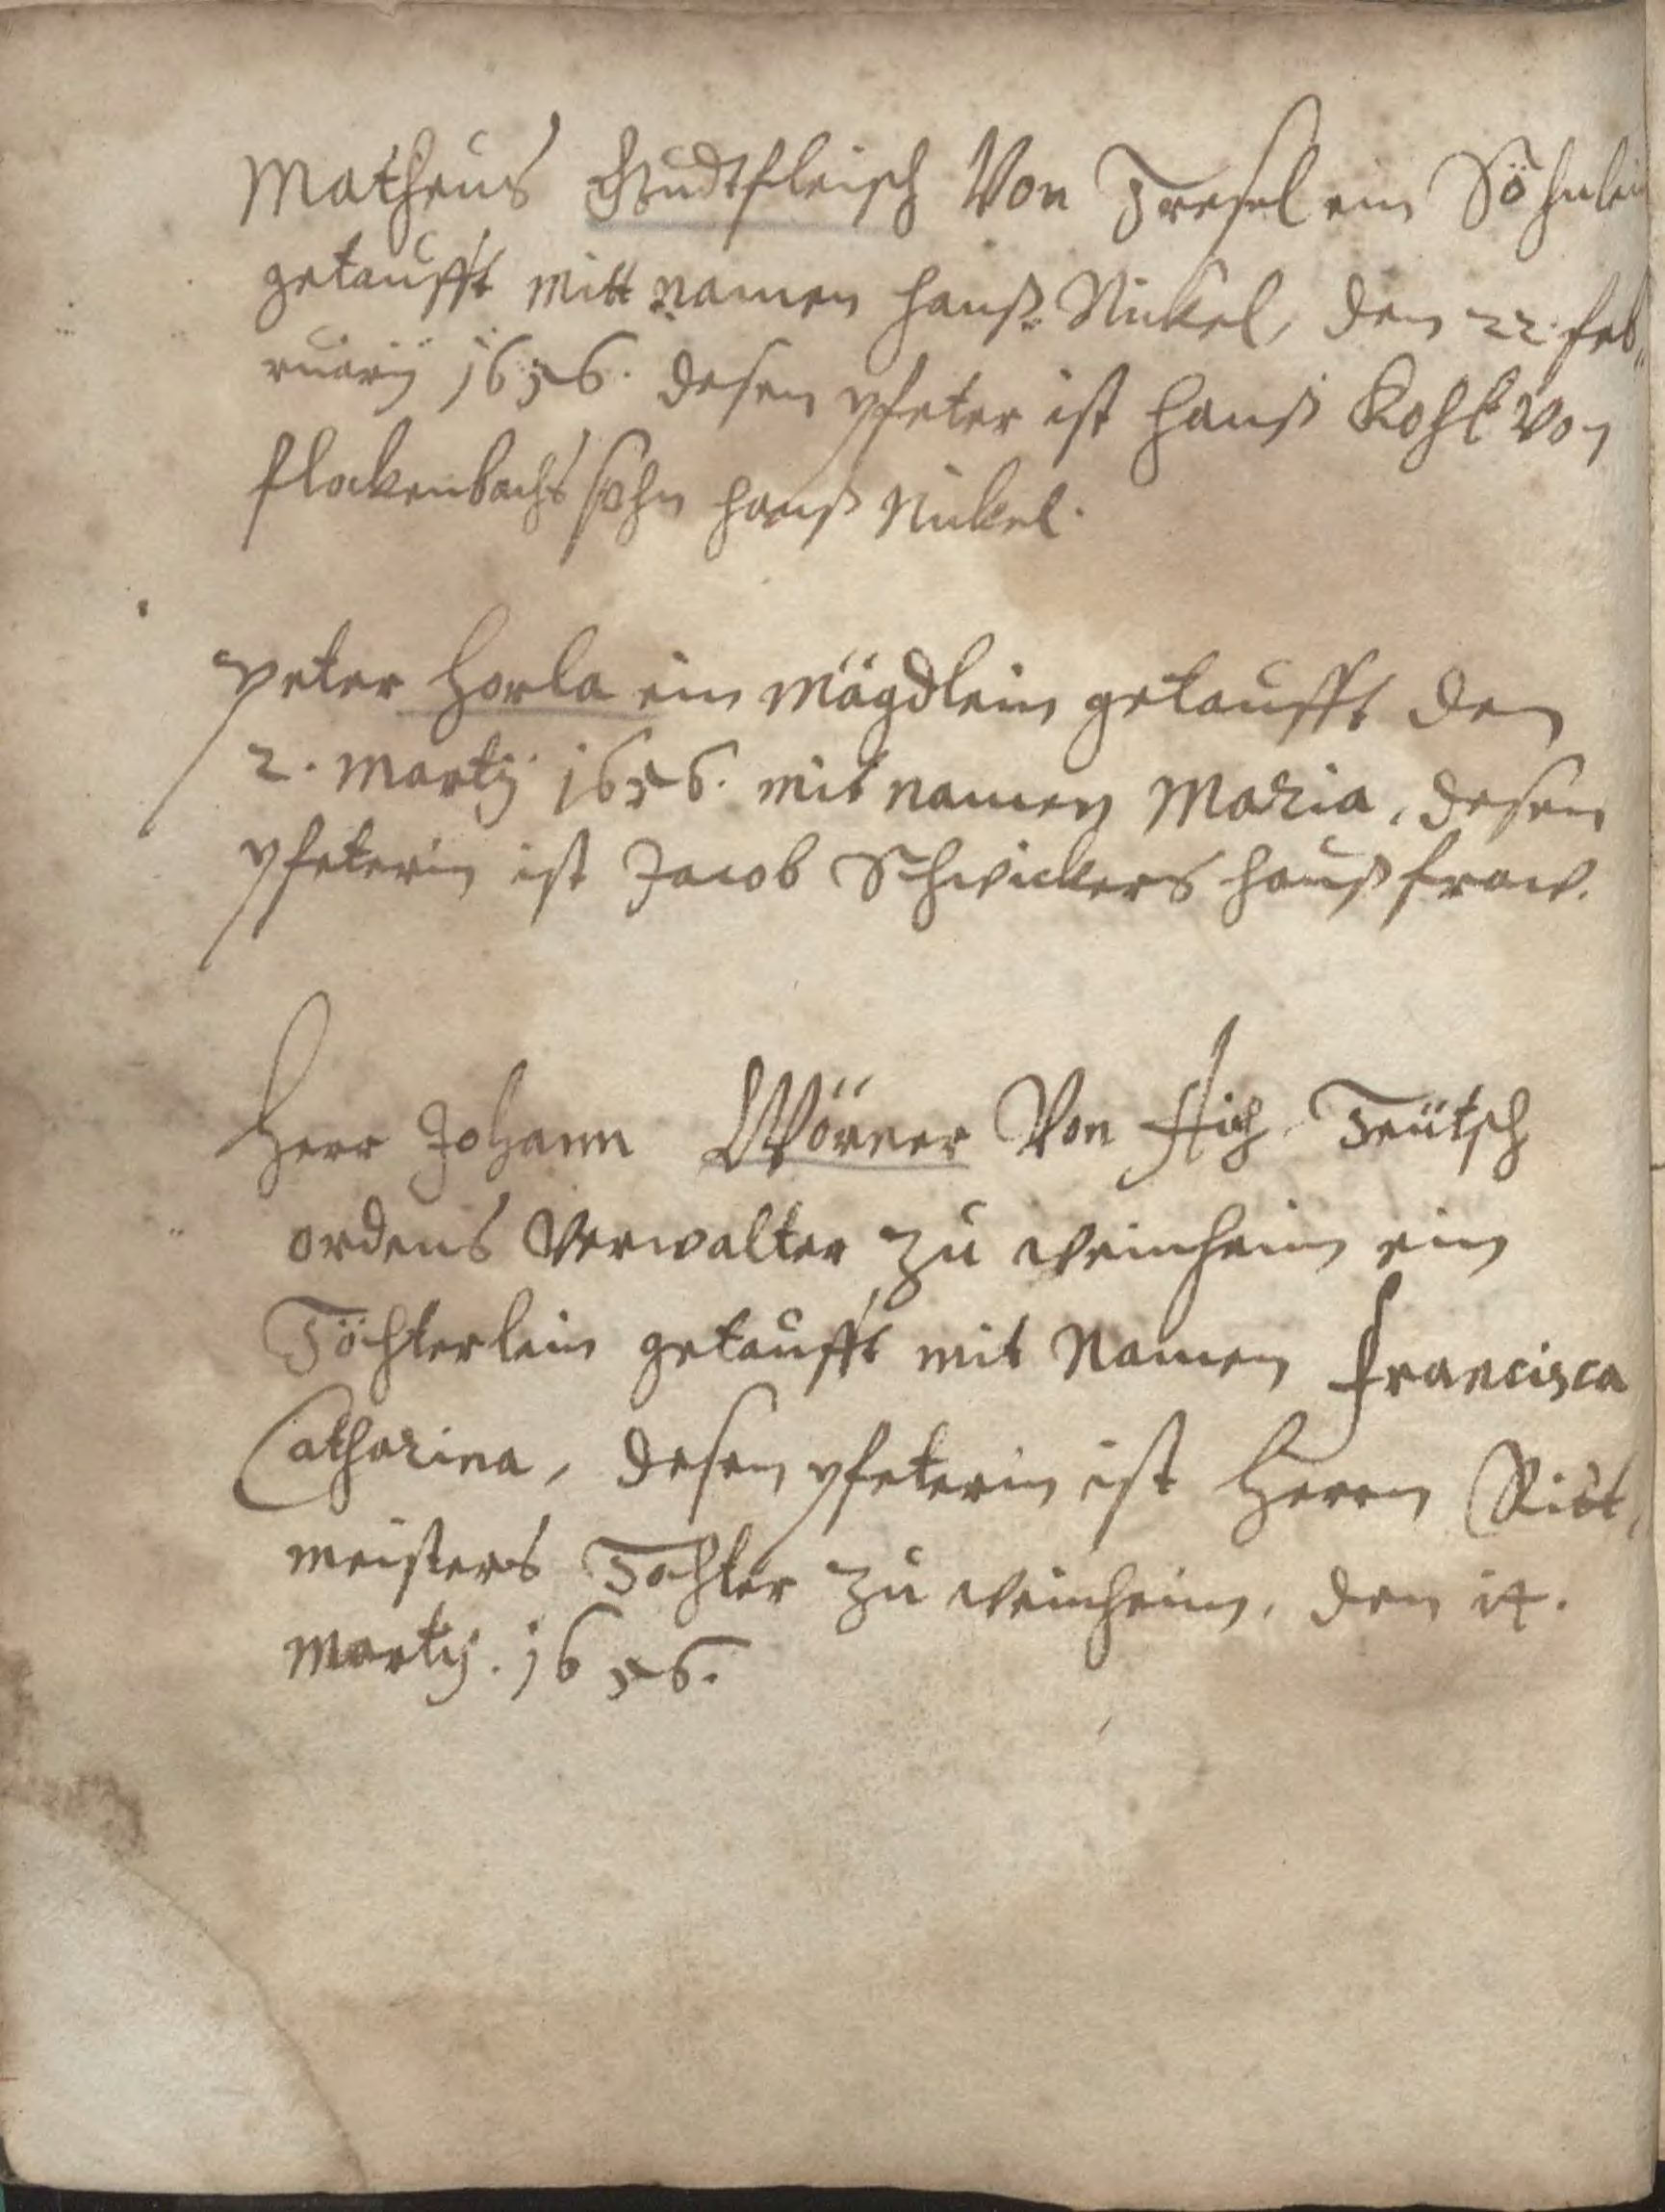 Matheus Gudtfleisch Von Tresel ein Söhnlein
getaufft mitt namen hanß Nickel, den 22. feb,,
ruarij 1656. desen pfeter ist hanß Kohl von
flockenbachs sohn hanß Nickel.
peter Horla ein Mägdlein getaufft den
2. Martij 1656. mit namen Maria, desen
pfeterin ist Jacob Schwickers haußfraw.
Herr Johann Wörner Von Teütsch
ordens Verwalter zu weinheim ein
Töchterlein getaufft mit Namen Francisca
Catharina, desen pfeterin ist Herrn Ritt,
meisters Tochter zu weinheim, den 14.
Martij. 1656.